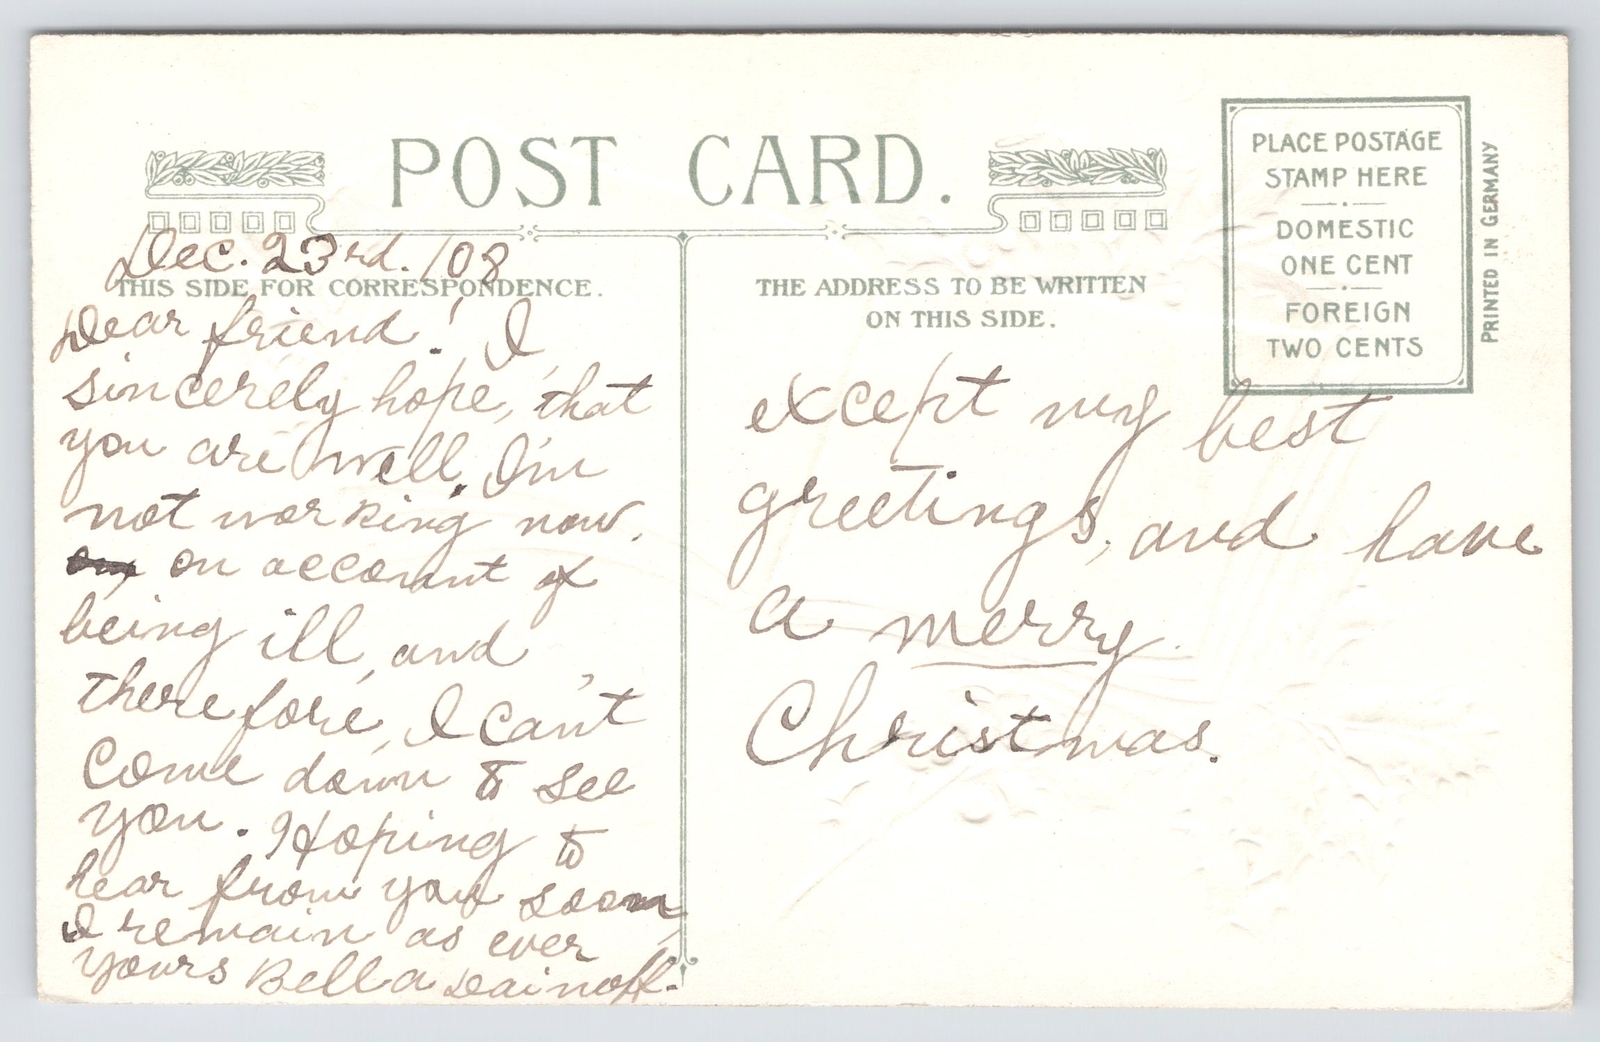 POST CARD.
PLACE POSTAGE
STAMP HERE
DOMESTIC
ONE CENT
FOREIGN
TWO CENTS
PRINTED IN GERMANY
Dec. 23rd. /08
THIS SIDE FOR CORRESPONDENCE.
Dear friend! I
sincerely hope, that
you are well. I'm
not working now,
on account of
being ill, and
therefore, I can't
come down to see
you. Hoping to
hear from you soon,
I remain as ever
yours Bella Dainoff.
THE ADDRESS TO BE WRITTEN
ON THIS SIDE.
except my best
greetings, and have
a merry
Christmas.